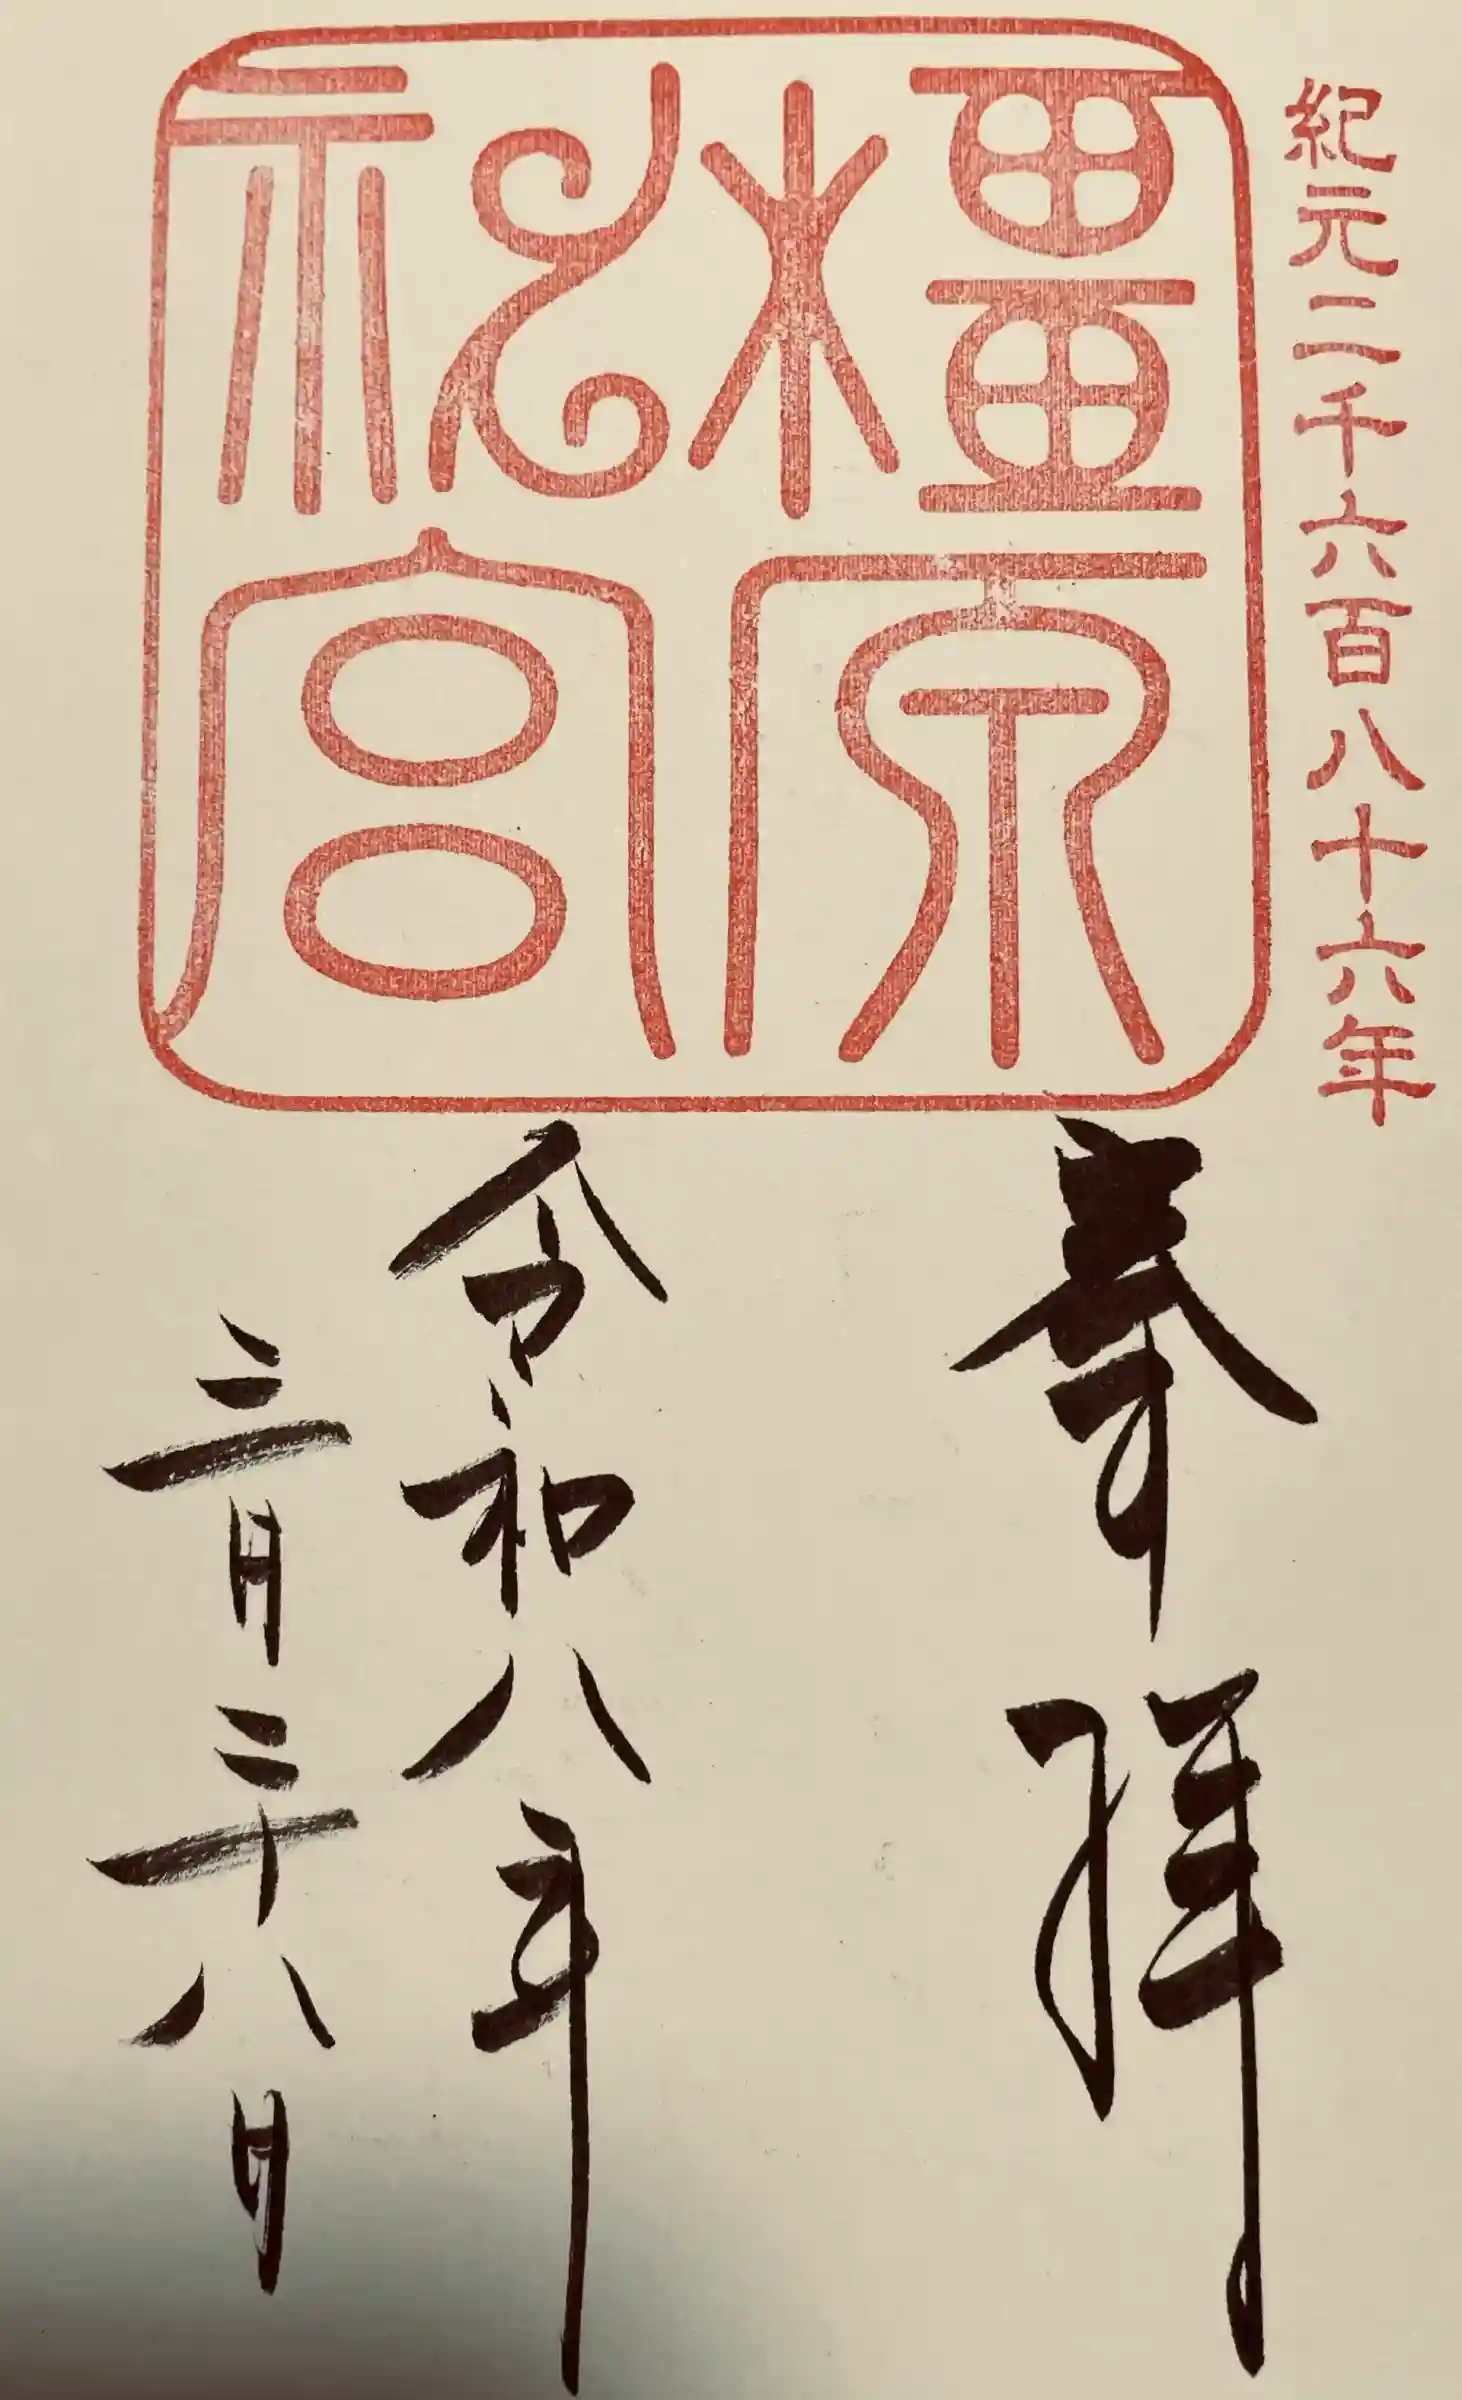 紀元二千六百八十六年
橿原神宮
奉拝
令和八年
三月二十八日